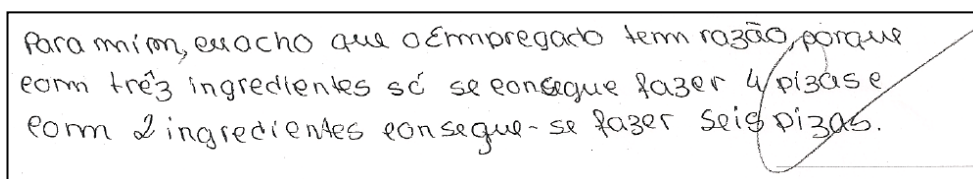 Para mim, eu acho que o Empregado tem razão, porque
com três ingredientes só se consegue fazer 4 pizas e
com 2 ingredientes consegue-se fazer seis pizas.